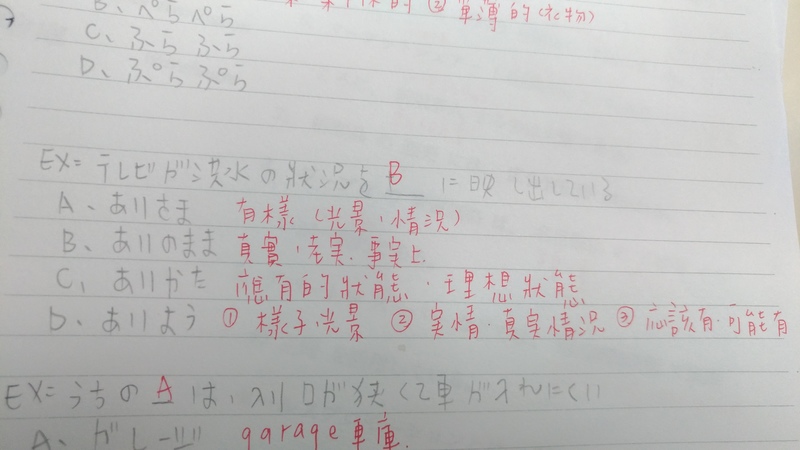 B、ぺらぺら ② 単薄的(衣物)
C、ふら ふら
D、ぷら ぷら
EX= テレビが洪水の狀況を B に映し出している
A、ありさま 有樣(光景、情況)
B、ありのまま 真實、老実、事実上.
C、ありかた 應有的狀態、理想狀態
D、ありよう ① 樣子、光景 ② 実情、真実情況 ③ 応該有、可能有
EX= うちの A は、入り口が狭くて車が入れにくい
A、ガレージ garage 車庫.